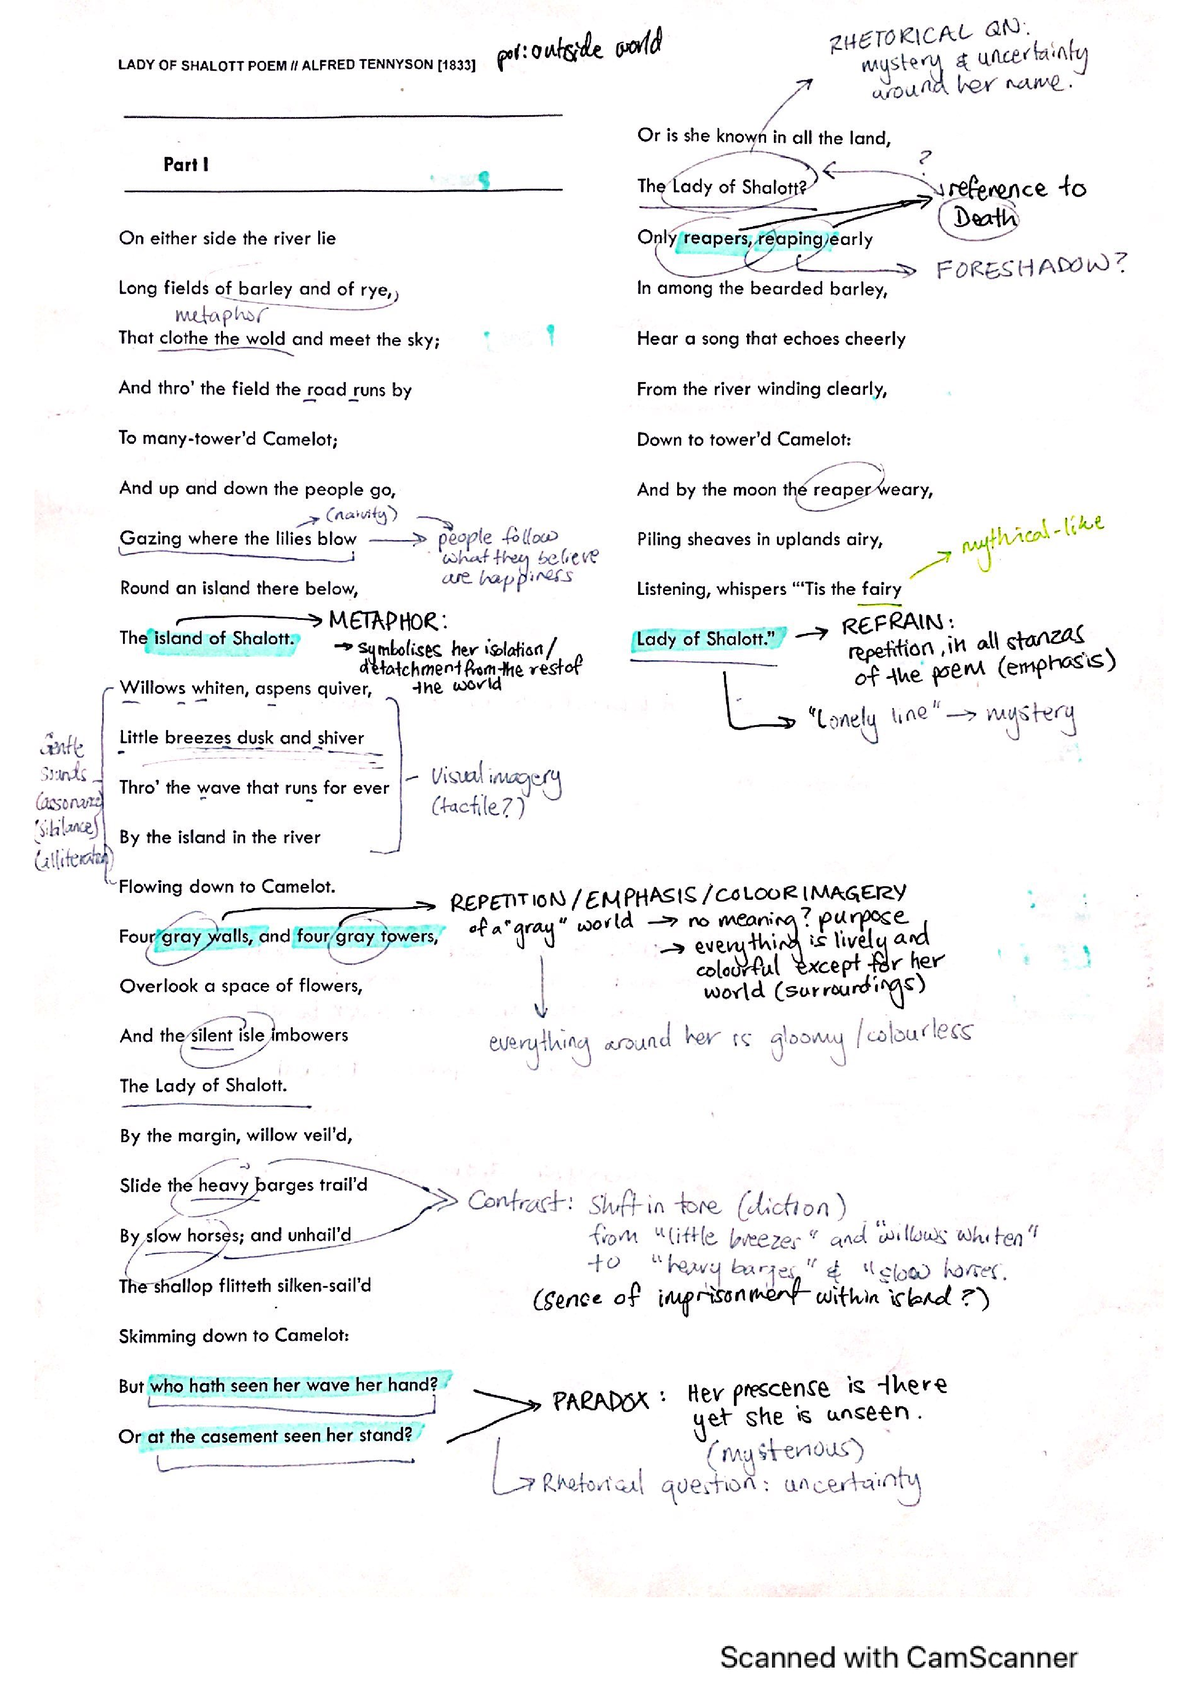 LADY OF SHALOTT POEM // ALFRED TENNYSON [1833]
pov: outside world
Part I
On either side the river lie
Long fields of barley and of rye,
metaphor
That clothe the wold and meet the sky;
And thro' the field the road runs by
To many-tower'd Camelot;
And up and down the people go,
(naivity)
Gazing where the lilies blow
people follow
what they believe
are happiness
Round an island there below,
The island of Shalott.
METAPHOR:
→ symbolises her isolation/
detatchment from the rest of
the world
Willows whiten, aspens quiver,
Little breezes dusk and shiver
Thro' the wave that runs for ever
By the island in the river
Flowing down to Camelot.
Gentle
Sounds
(assonance)
(sibilance)
(alliteration)
Visual imagery
(tactile?)
Four gray walls, and four gray towers,
REPETITION/EMPHASIS/COLOUR IMAGERY
of a "gray" world → no meaning? purpose
→ everything is lively and
colourful except for her
world (surroundings)
everything around her is gloomy/colourless
Overlook a space of flowers,
And the silent isle imbowers
The Lady of Shalott.
By the margin, willow veil'd,
Slide the heavy barges trail'd
By slow horses; and unhail'd
The shallop flitteth silken-sail'd
Skimming down to Camelot:
Contrast: Shift in tone (diction)
from "little breezes" and "willows whiten"
to "heavy barges" & "slow horses.
(sense of imprisonment within island?)
But who hath seen her wave her hand?
Or at the casement seen her stand?
PARADOX: Her prescense is there
yet she is unseen.
(mysterious)
Rhetorical question: uncertainty
RHETORICAL QN:
mystery & uncertainty
around her name.
Or is she known in all the land,
The Lady of Shalott?
?
reference to
Death
Only reapers, reaping early
FORESHADOW?
In among the bearded barley,
Hear a song that echoes cheerly
From the river winding clearly,
Down to tower'd Camelot:
And by the moon the reaper weary,
Piling sheaves in uplands airy,
mythical-like
Listening, whispers "'Tis the fairy
Lady of Shalott."
→ REFRAIN:
repetition, in all stanzas
of the poem (emphasis)
"Lonely line" → mystery
Scanned with CamScanner